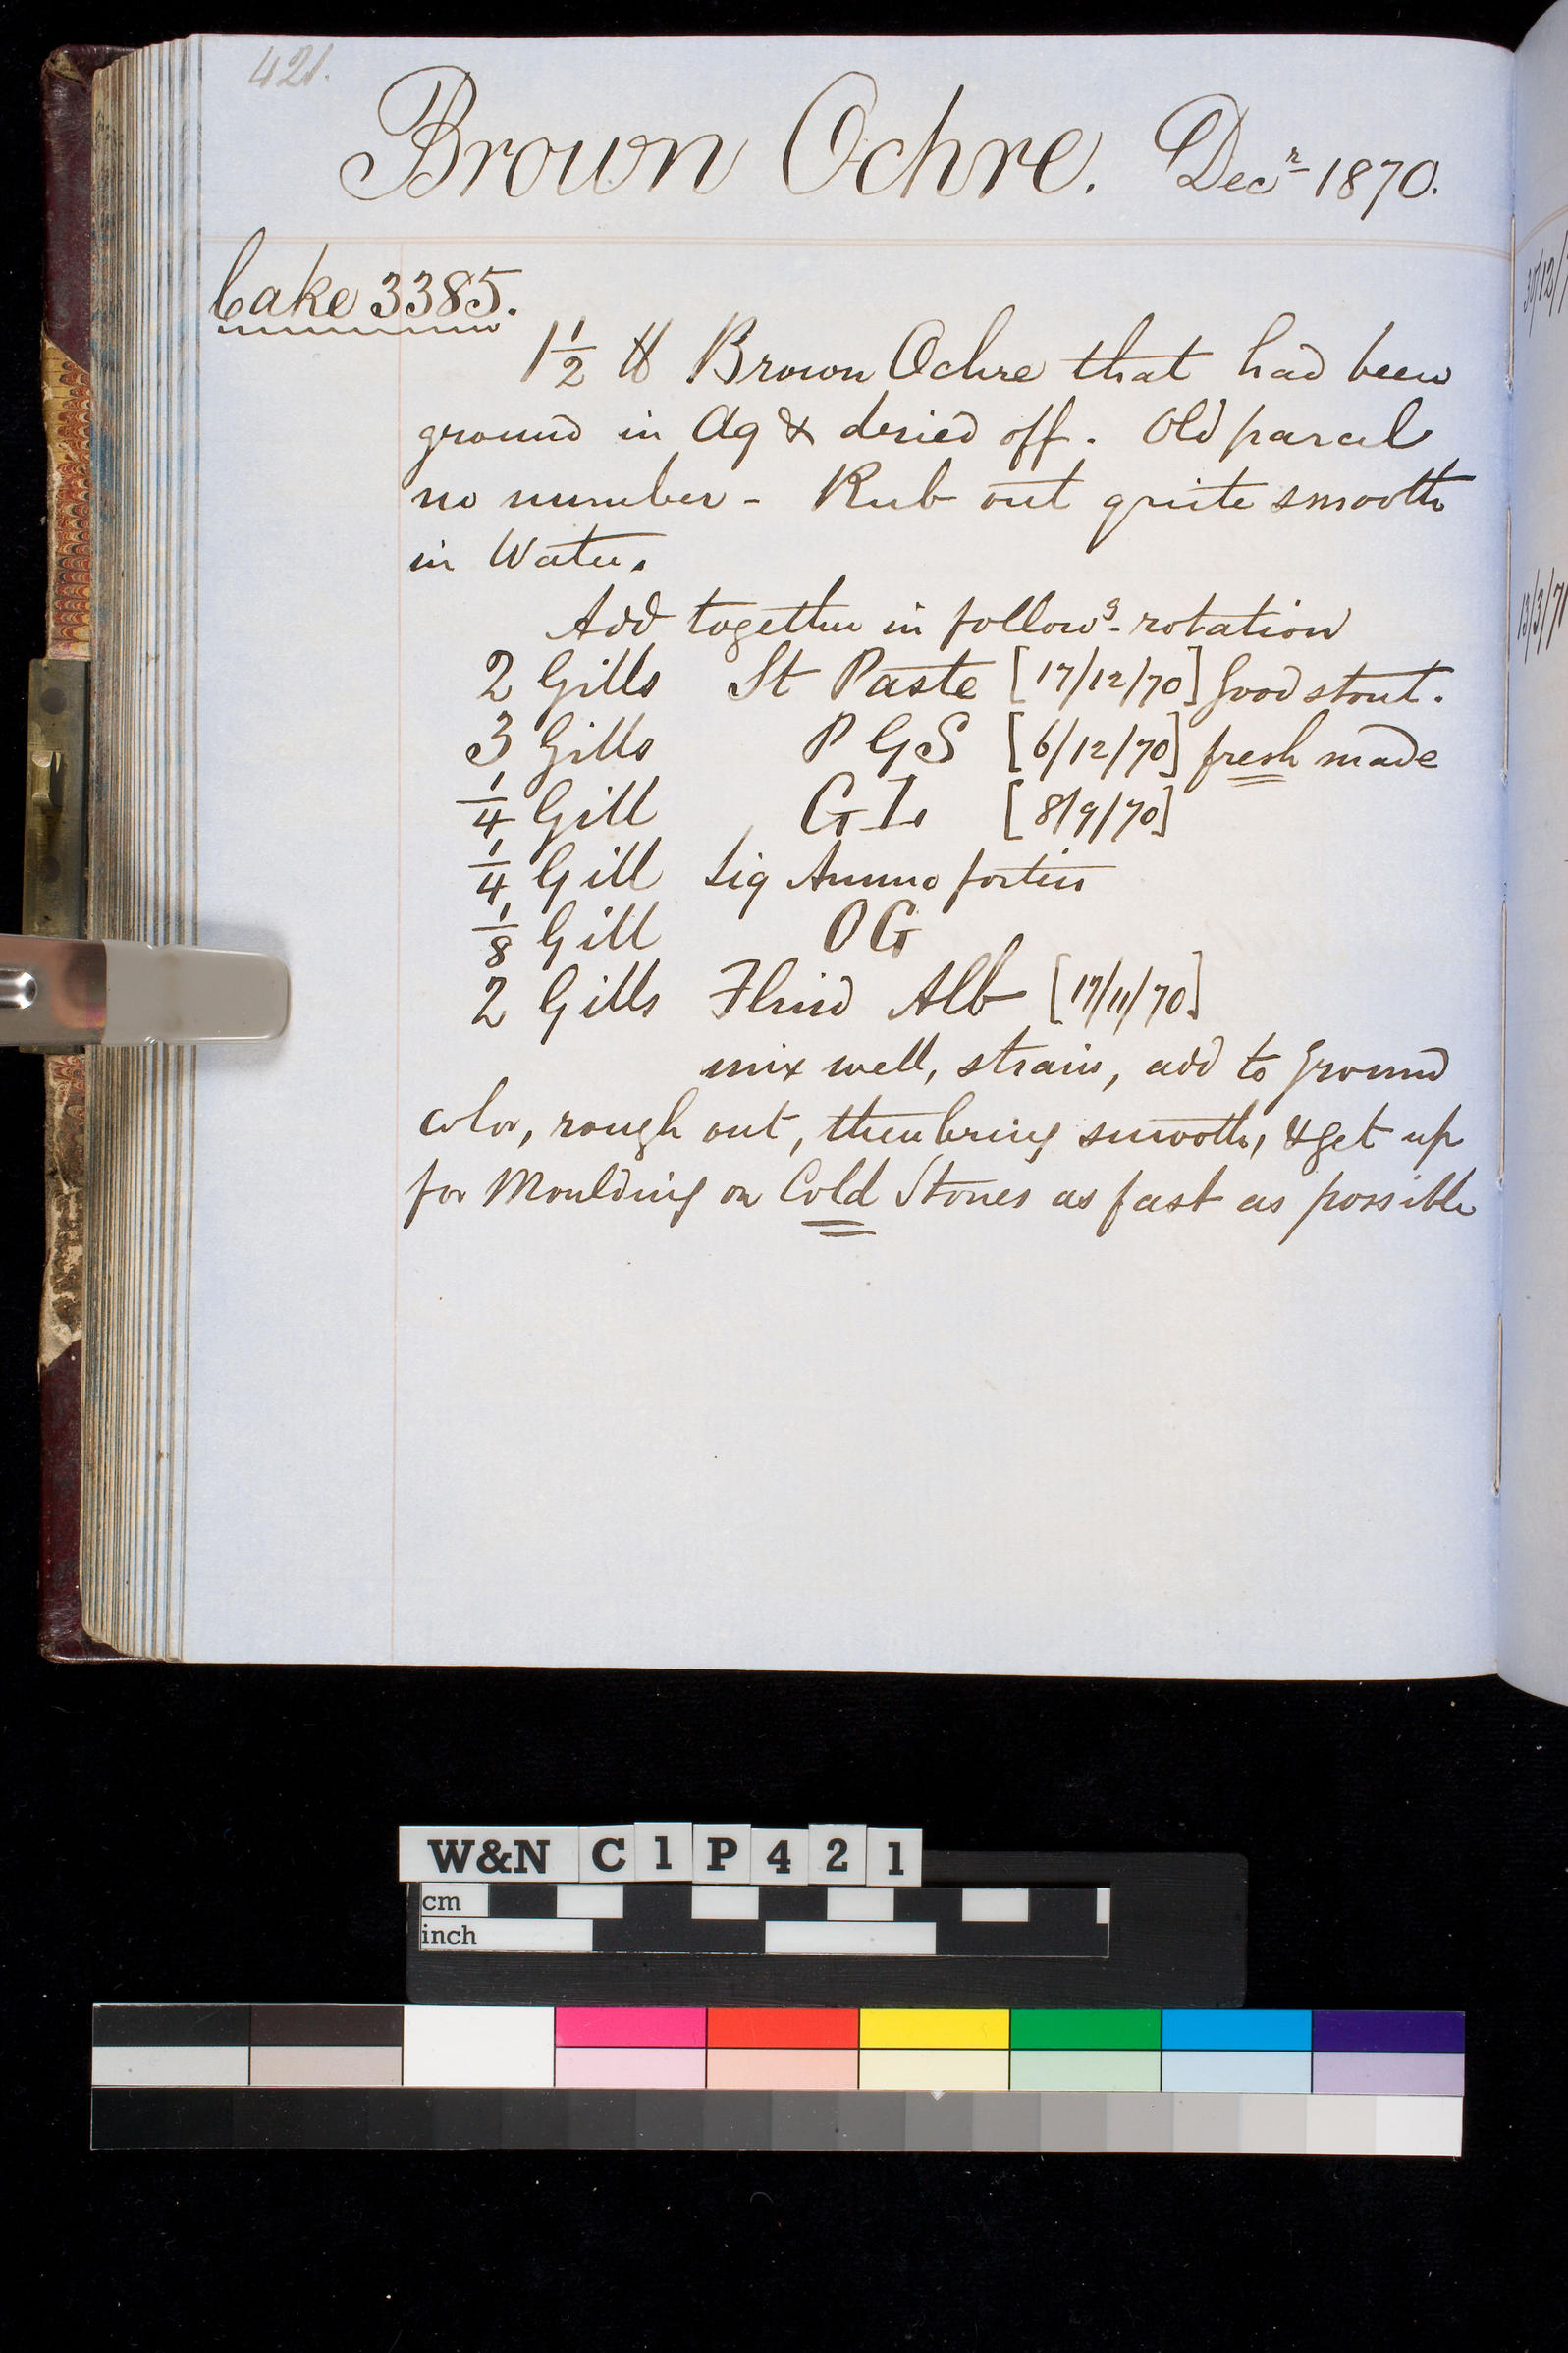 421.
Brown Ochre. Decr 1870.
Cake 3385.
1½ ℔ Brown Ochre that had been
ground in Aq & dried off. Old parcel
no number - Rub out quite smooth
in Water.
Add together in follows- rotation
2 Gills St Paste [17/12/70] Good stout.
3 Gills P G S [6/12/70] fresh made
¼ Gill G L. [8/9/70]
¼ Gill Liq Ammo fortis
⅛ Gill O G
2 Gills Fluid Alb [17/11/70]
mix well, strain, add to ground
color, rough out, then bring smooth, & get up
for Moulding on Cold Stones as fast as possible
13/3/7
W&N C1P421
cm
inch